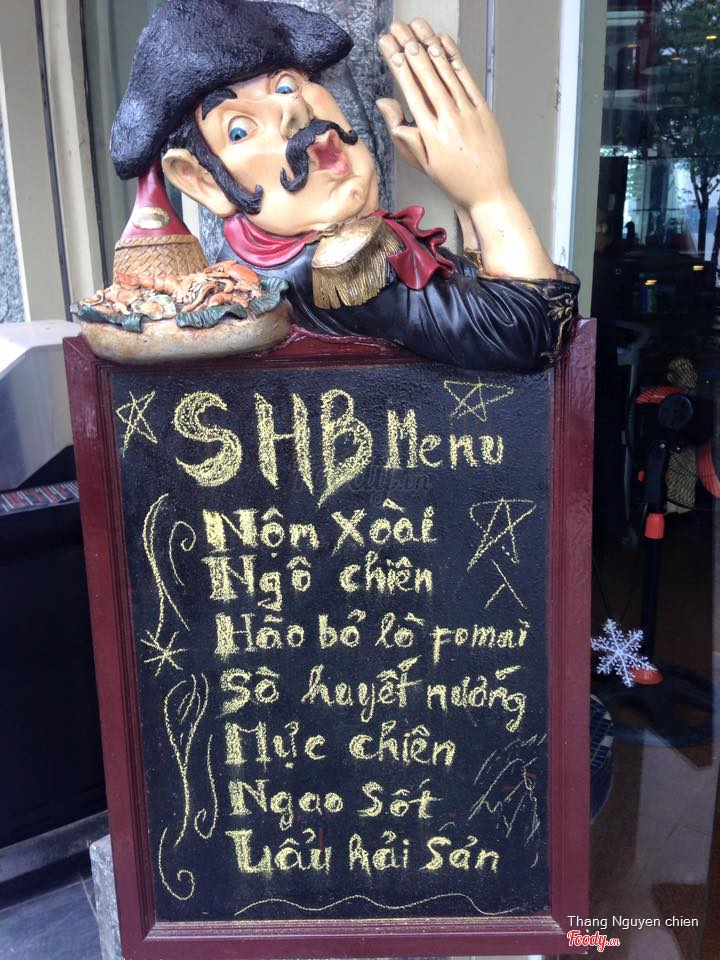 SHB Menu
Nộm Xoài
Ngô chiên
Hào bỏ lò fomai
Sò huyết nướng
Mực chiên
Ngao Sốt
Lẩu hải Sản
Thang Nguyen chien
Foody.vn